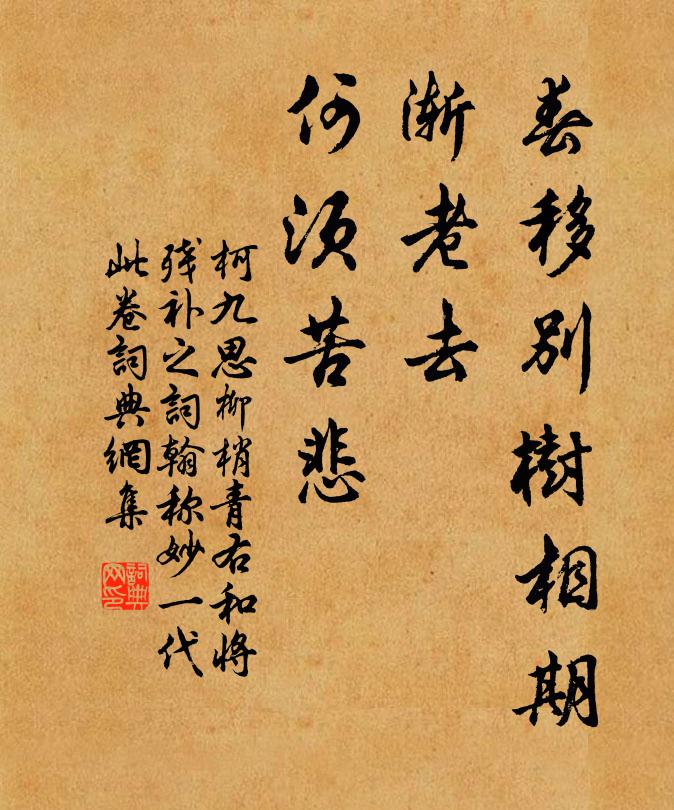 春移别樹相期
漸老去
何須苦悲
柯九思柳梢青右和将
残补之詞翰称妙一代
此卷詞典網集
詞典
网印